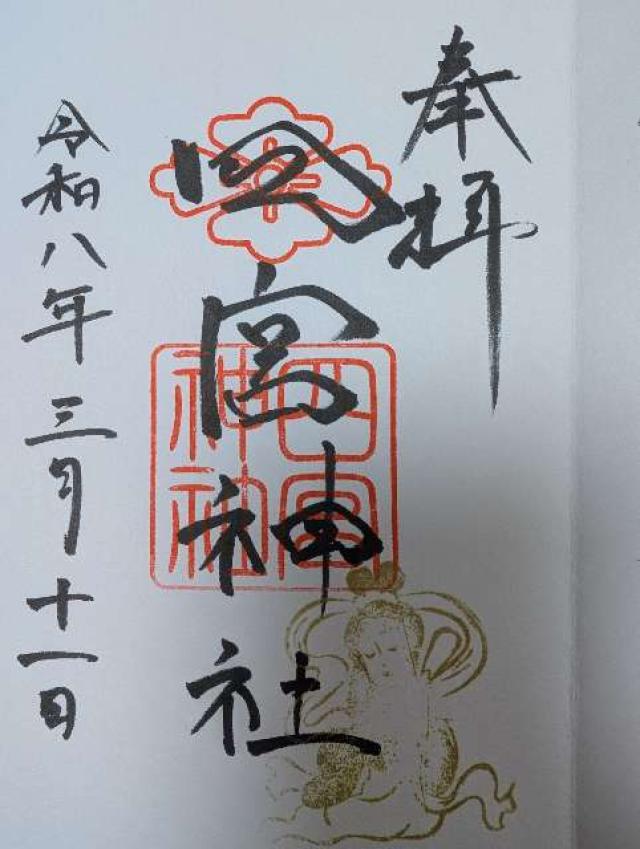 奉拝
四宮神社
四宮
神社
令和八年三月十一日